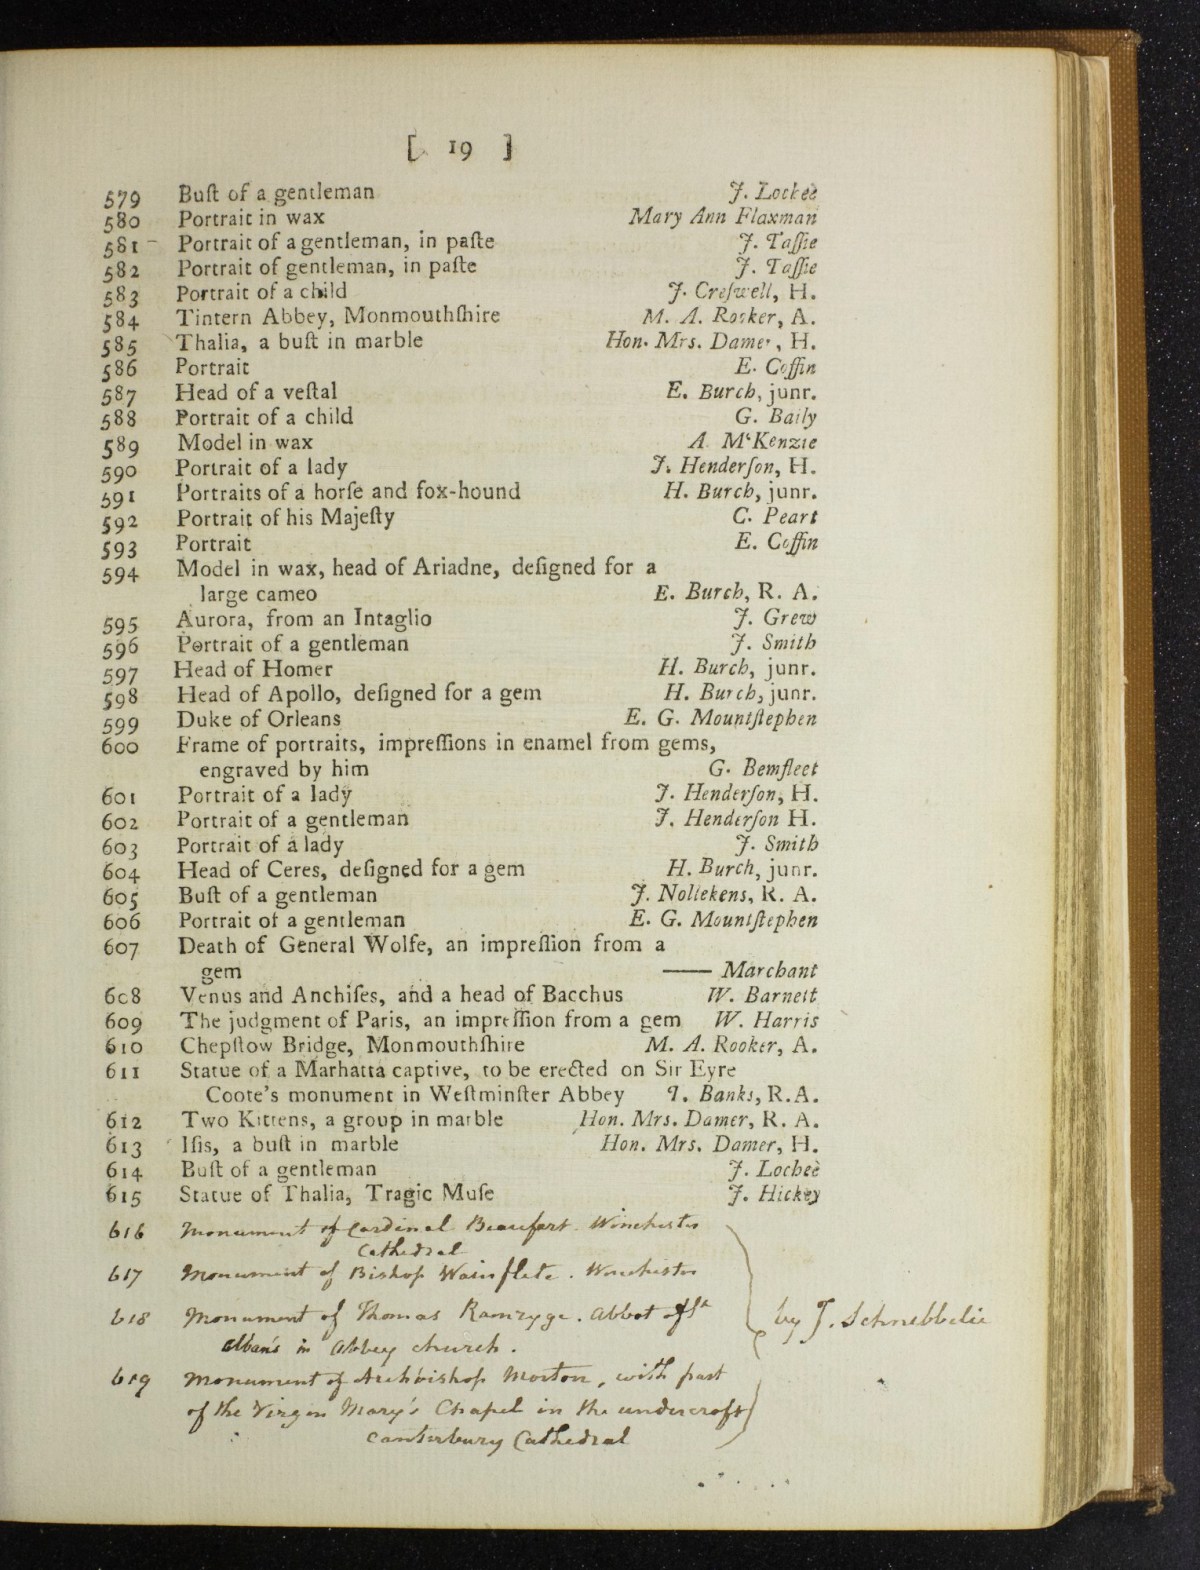 [ 19 ]
579 Buſt of a gentleman J. Locheè
580 Portrait in wax Mary Ann Flaxman
581 Portrait of a gentleman, in paſte J. Taſſie
582 Portrait of gentleman, in paſte J. Taſſie
583 Portrait of a child J. Creſwell, H.
584 Tintern Abbey, Monmouthſhire M. A. Rooker, A.
585 Thalia, a buſt in marble Hon. Mrs. Damer, H.
586 Portrait E. Coffin
587 Head of a veſtal E. Burch, junr.
588 Portrait of a child G. Baily
589 Model in wax A McKenzie
590 Portrait of a lady J. Henderſon, H.
591 Portraits of a horſe and fox-hound H. Burch, junr.
592 Portrait of his Majeſty C. Peart
593 Portrait E. Coffin
594 Model in wax, head of Ariadne, deſigned for a
large cameo E. Burch, R. A.
595 Aurora, from an Intaglio J. Grew
596 Portrait of a gentleman J. Smith
597 Head of Homer H. Burch, junr.
598 Head of Apollo, deſigned for a gem H. Burch, junr.
599 Duke of Orleans E. G. Mountſtephen
600 Frame of portraits, impreſſions in enamel from gems,
engraved by him G. Bemfleet
601 Portrait of a lady J. Henderſon, H.
602 Portrait of a gentleman J. Henderſon H.
603 Portrait of a lady J. Smith
604 Head of Ceres, deſigned for a gem H. Burch, junr.
605 Buſt of a gentleman J. Nollekens, R. A.
606 Portrait of a gentleman E. G. Mountſtephen
607 Death of General Wolfe, an impreſſion from a
gem —— Marchant
608 Venus and Anchiſes, and a head of Bacchus W. Barnett
609 The judgment of Paris, an impreſſion from a gem W. Harris
610 Chepſtow Bridge, Monmouthſhire M. A. Rooker, A.
611 Statue of a Marhatta captive, to be erected on Sir Eyre
Coote's monument in Weſtminſter Abbey T. Banks, R.A.
612 Two Kittens, a group in marble Hon. Mrs. Damer, R. A.
613 Iſis, a buſt in marble Hon. Mrs. Damer, H.
614 Buſt of a gentleman J. Locheè
615 Statue of Thalia, Tragic Muſe J. Hickey
616 Monument of Cardinal Beaufort Winchester
Cathedral
617 Monument of Bishop Wainflete. Winchester
618 Monument of Thomas Ramryge. Abbot of St
Alban's in Abbey church. by J. Schnebbelie
619 Monument of Archbishop Morton, with part
of the Virgin Mary's Chapel in the undercroft
Canterbury Cathedral